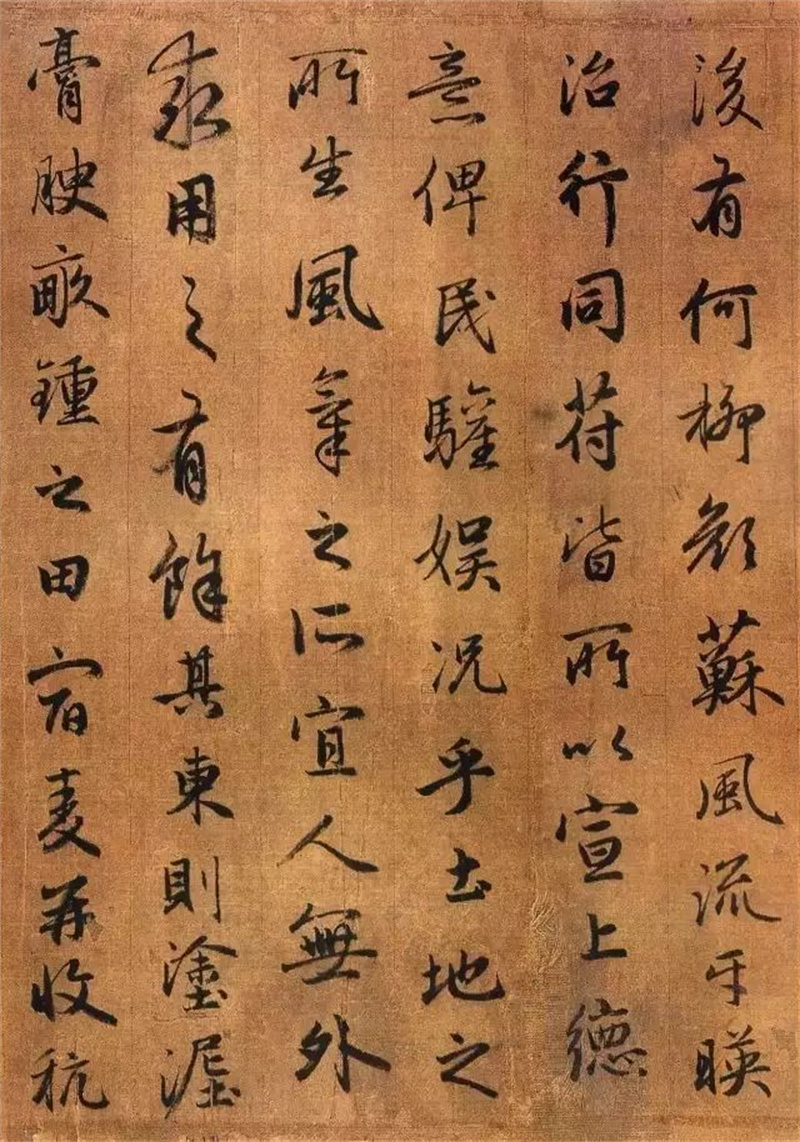 後有何柳顔蘇風流互暎
治行同苻皆所以宣上德
意俾民驩娱况乎土地之
所生風氣之所宜人無外
求用之有餘其東則塗埿
膏腴畝鍾之田宿麦再收秔